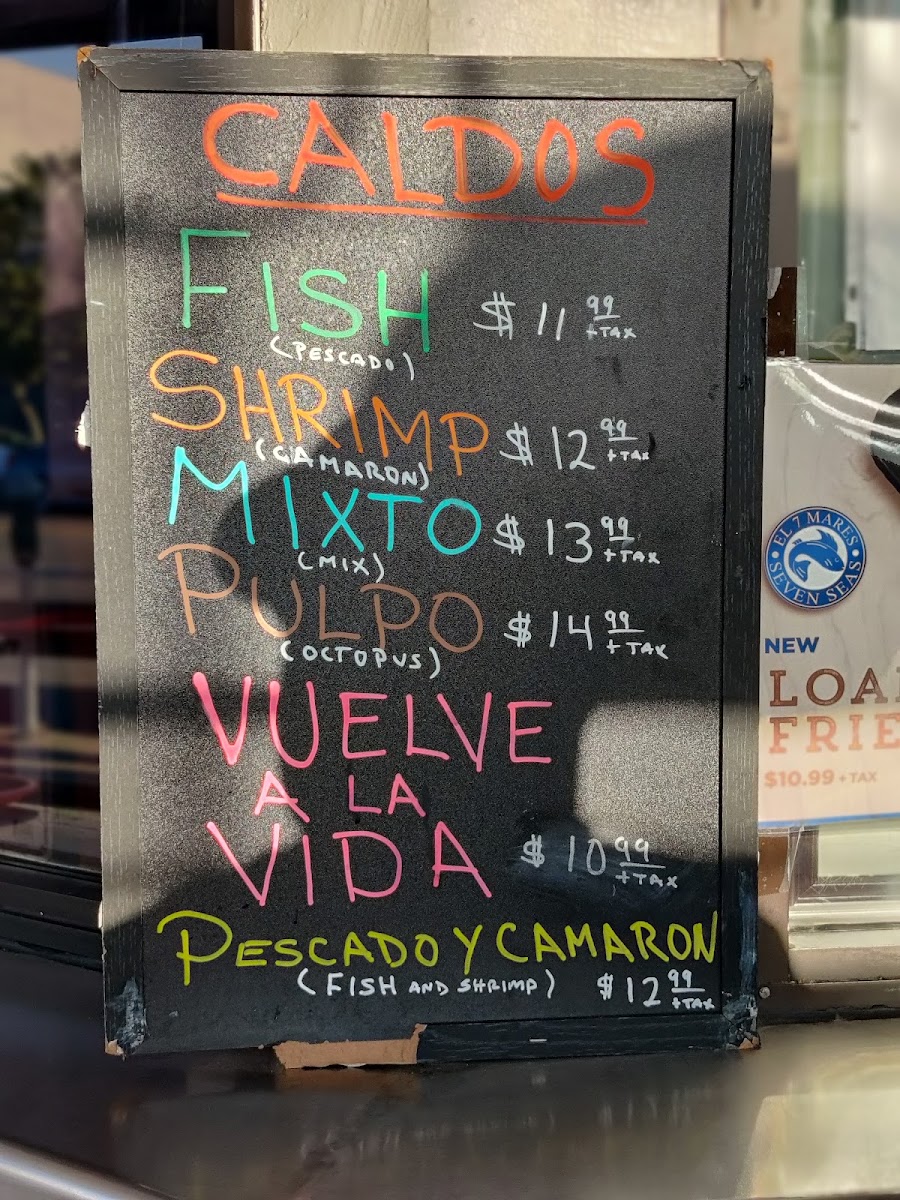 CALDOS
FISH $ 11 99 +TAX
(PESCADO)
SHRIMP $ 12 99 +TAX
(CAMARON)
MIXTO $ 13 99 +TAX
(MIX)
PULPO $ 14 99 +TAX
(OCTOPUS)
VUELVE
A LA
VIDA $ 10 99 +TAX
PESCADO Y CAMARON
(FISH AND SHRIMP) $ 12 99 +TAX
EL 7 MARES
SEVEN SEAS
NEW
LOA
FRIE
$10.99 + TAX